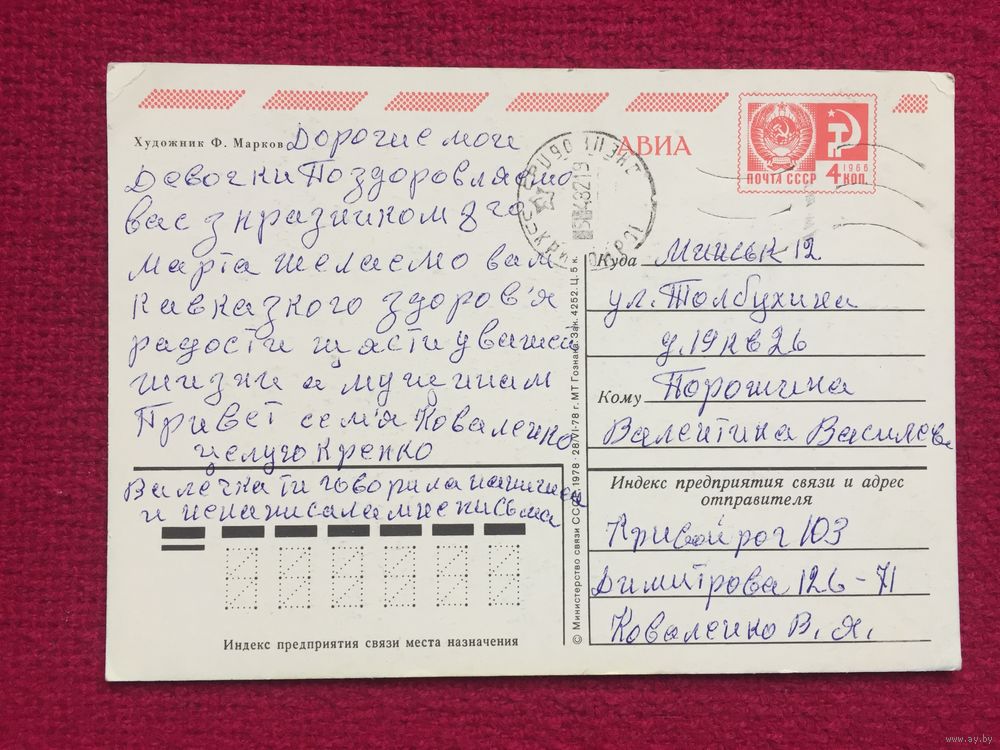 Художник Ф. Марков Дорогие мои
Девочки Поздоровляемо
вас з празником 8 го
марта желаемо вам
кавказкого здоров'я
радости щасти у вашей
жизни а мущинам
Привет сем'я Коваленко
целую крепко
Валечка ти говорила напишеш
и ненаписала мне письма
Индекс предприятия связи места назначения
© Министерство связи СССР. 1978 · 28/VI-78 г. МТ Гознака. Зак. 4252. Ц. 5 к.
АВИА
ПОЧТА СССР 4 КОП.
1966
Куда Минськ 12
ул. Толбухина
д. 19 кв 26
Кому Порошина
Валентина Василева
Индекс предприятия связи и адрес
отправителя
Кривой рог 103
Димитрова 126-71
Коваленко В. Я.
www.ay.by